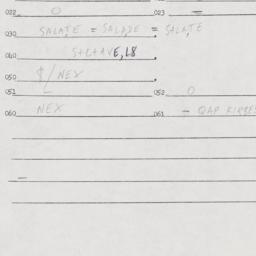 022 O 023 –
030 SALATE = SALADE = SALATE
040 S+L+AVE, L8
050 $/NEX
051 052 O
060 NEX 061 – QAP KIRBES